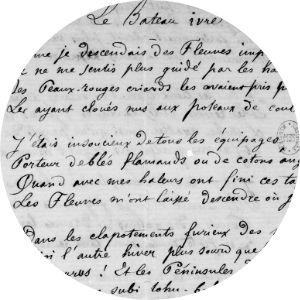 Le Bateau ivre
me je descendais des Fleuves imp
ne me sentis plus guidé par les ha
es Peaux-rouges criards les avaient pris p
Les ayant cloués nus aux poteaux de coul
J'étais insoucieux de tous les équipages
Porteur de blés flamands ou de cotons ang
Quand avec mes haleurs ont fini ces ta
Les Fleuves m'ont laissé descendre où j
Dans les clapotements furieux des
i l'autre hiver plus sourd que
! Et les Péninsules
subi tohu-b